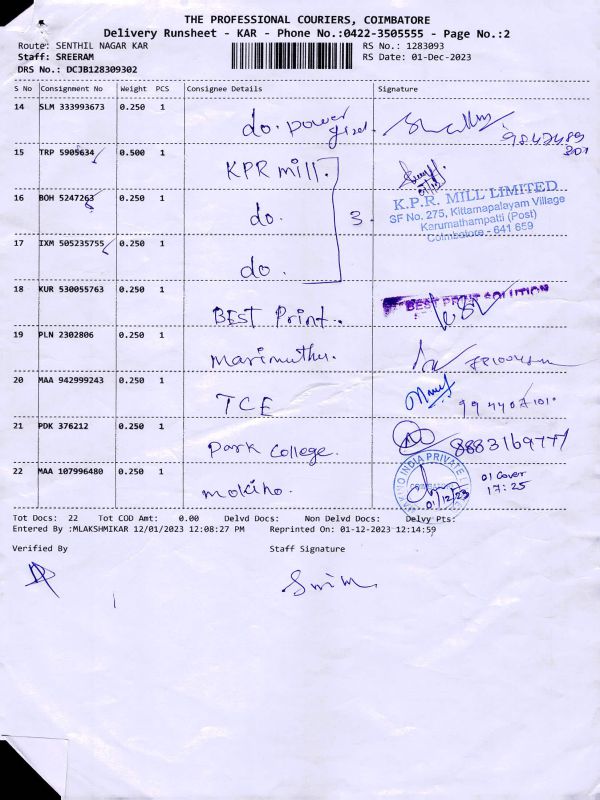 THE PROFESSIONAL COURIERS, COIMBATORE
Delivery Runsheet - KAR - Phone No.:0422-3505555 - Page No.:2
Route: SENTHIL NAGAR KAR RS No.: 1283093
Staff: SREERAM RS Date: 01-Dec-2023
DRS No.: DCJB128309302
S No Consignment No Weight PCS Consignee Details Signature
14 SLM 333993673 0.250 1
do. power
9842489
15 TRP 5905634 0.500 1
KPR mill.
16 BOH 5247263 0.250 1
do. 3
K.P.R. MILL LIMITED
SF No. 275, Kittampalayam Village
Karumathampatti (Post)
Coimbatore - 641 659
17 IXM 505235755 0.250 1
do.
18 KUR 530055763 0.250 1
BEST Print. BEST PRINT SOLUTION
19 PLN 2302806 0.250 1
Marimuthu.
20 MAA 942999243 0.250 1
TCE
21 PDK 376212 0.250 1
Park College.
22 MAA 107996480 0.250 1
mokino. INDIA PRIVATE 01/12/23 01 Cover
17:25
Tot Docs: 22 Tot COD Amt: 0.00 Delvd Docs: Non Delvd Docs: Delvy Pts:
Entered By :MLAKSHMIKAR 12/01/2023 12:08:27 PM Reprinted On: 01-12-2023 12:14:59
Verified By Staff Signature